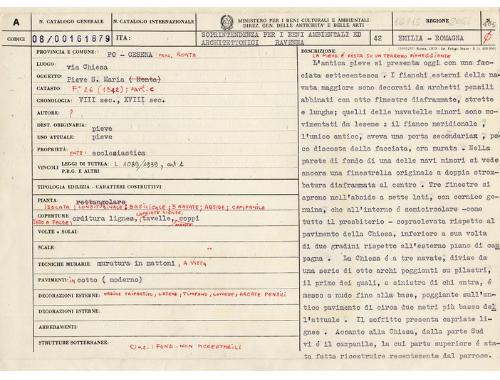 A
N. CATALOGO GENERALE
N. CATALOGO INTERNAZIONALE
MINISTERO PER I BENI CULTURALI E AMBIENTALI
DIREZ. GEN. DELLE ANTICHITA' E BELLE ARTI
REGIONE
N.
CODICI
08/00161879
ITA:
SOPRINTENDENZA PER I BENI AMBIENTALI ED
ARCHITETTONICI RAVENNA
42
EMILIA - ROMAGNA
PROVINCIA E COMUNE: FO - CESENA
LUOGO: via Chiesa
OGGETTO: Pieve S. Maria (Ronta)
CATASTO: F° 26 (1942); part. C
CRONOLOGIA: VIII sec., XVIII sec.
AUTORE: ?
DEST. ORIGINARIA: pieve
USO ATTUALE: pieve
PROPRIETÀ: ENTE: ecclesiastica
VINCOLI
LEGGI DI TUTELA: L. 1089/1939, art. 4
P.R.G. E ALTRI:
TIPOLOGIA EDILIZIA - CARATTERI COSTRUTTIVI
PIANTA: rettangolare
ISOLATA; LONGITUDINALE; BASILICALE; 3 NAVATE; ABSIDE; CAMPANILE
COPERTURE: orditura lignea, tavelle, coppi
VOLTE o SOLAI:
SCALE:
TECNICHE MURARIE: muratura in mattoni, A VISTA
PAVIMENTI: in cotto (moderno)
DECORAZIONI ESTERNE:
DECORAZIONI INTERNE:
ARREDAMENTI:
STRUTTURE SOTTERRANEE:
DESCRIZIONE
LA PIEVE È POSTA SU UN TERRENO PIANEGGIANTE
L'antica pieve si presenta oggi con una fac
ciata settecentesca. I fianchi esterni della na
vata maggiore sono decorati da archetti pensili
abbinati con otto finestre diaframmate, strette
e lunghe; quelli delle navatelle minori sono mo-
vimentati da lesene; il fianco meridionale,
l'unico antico, aveva una porta secondaria, po-
co discosta dalla facciata, ora murata. Nella
parete di fondo di una delle navi minori si vede
ancora una finestrella originale a doppia strom-
batura diaframmata al centro. Tre finestre si
aprono nell'abside a sette lati, con cornice ge-
muina, che all'interno è semicircolare - come
tutto il presbiterio - sopraelevata rispetto al
pavimento della Chiesa, inferiore a sua volta
di due gradini rispetto all'esterno piano di cam
pagna. La Chiesa é a tre navate, divise da
una serie di otto archi poggianti su pilastri,
il primo dei quali, a sinistra di chi entra, é
messo a nudo fino alla base, poggiante sull'an-
tico pavimento di circa due metri più basso del
l'attuale. Il soffitto presenta capriate li-
gnee. Accanto alla Chiesa, dalla parte Sud
vi é il campanile, la cui parte superiore é sta-
ta fatta ricostruire recentemente dal parroco.